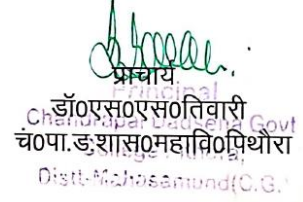 प्राचार्य
Principal
डॉ०एस०एस०तिवारी
Chandrapal Dadsena Govt
चं०पा.ड.शास०महावि०पिथौरा
College
Distt-Mahasamund(C.G.